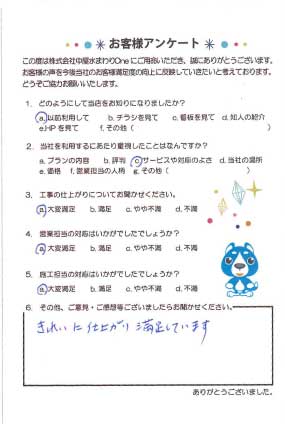 お客様アンケート
この度は株式会社中屋水まわりOneにご用命いただき、誠にありがとうございます。
お客様の声を今後当社のお客様満足度の向上に反映していきたいと考えております。
どうぞご協力お願いいたします。
1. どのようにして当店をお知りになりましたか？
a.以前利用して b. チラシを見て c. 看板を見て d. 知人の紹介
e.HP を見て f. その他（ ）
2. 当社を利用するにあたり重視したことはなんですか？
a. プランの内容 b. 評判 c.サービスや対応のよさ d. 当社の場所
e. 価格 f. 営業担当の人柄 g. その他（ ）
3. 工事の仕上がりについてお聞かせください。
a.大変満足 b. 満足 c. やや不満 d. 不満
4. 営業担当の対応はいかがでしたでしょうか？
a.大変満足 b. 満足 c. やや不満 d. 不満
5. 施工担当の対応はいかがでしたでしょうか？
a.大変満足 b. 満足 c. やや不満 d. 不満
6. その他、ご意見・ご感想等ございましたらお聞かせください。
きれいに仕上がり満足しています
ありがとうございました。